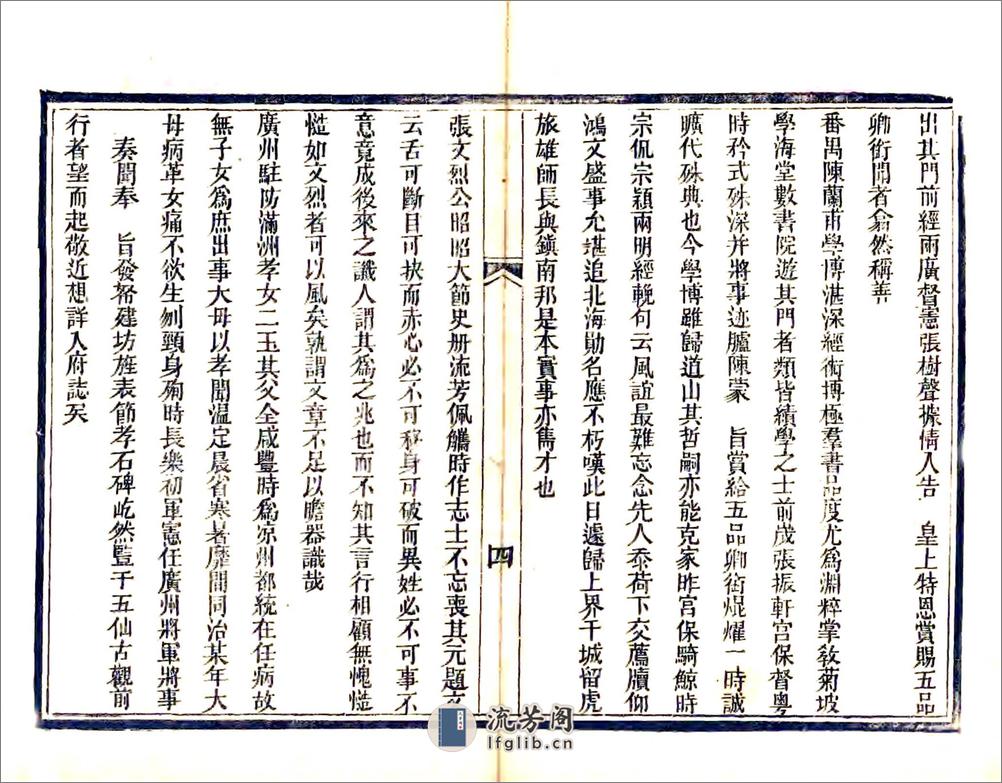 出其門前經兩廣督憲張樹聲據情入告　皇上特恩賞賜五品
卿銜聞者翕然稱善
番禺陳蘭甫學博湛深經術摶極羣書品度尤爲淵粹掌敎菊坡
學海堂數書院遊其門者類皆績學之士前歲張振軒宮保督粵
時矜式殊深并將事迹臚陳蒙　旨賞給五品卿銜焜燿一時誠
曠代殊典也今學博雖歸道山其哲嗣亦能克家昨宮保騎鯨時
宗侃宗穎兩明經輓句云風誼最難忘念先人忝荷下交薦牘仰
鴻文盛事允堪追北海勛名應不朽嘆此日遽歸上界干城留虎
旅雄師長與鎭南邦是本實事亦雋才也
四
張文烈公昭昭大節史册流芳佩觿時作志士不忘喪其元題文
云舌可斷目可抉而赤心必不可移身可破而異姓必不可事不
意竟成後來之讖人謂其爲之兆也而不知其言行相顧無愧慥
慥如文烈者可以風矣孰謂文章不足以瞻器識哉
廣州駐防滿洲孝女二玉其父全咸豐時爲凉州都統在任病故
無子女爲庶出事大母以孝聞溫定晨省寒暑靡間同治某年大
母病革女痛不欲生刎頸身殉時長樂初軍憲任廣州將軍將事
奏聞奉　旨發帑建坊旌表節孝石碑屹然豎于五仙古觀前
行者望而起敬近想詳入府誌矣
流芳阁
lfglib.cn